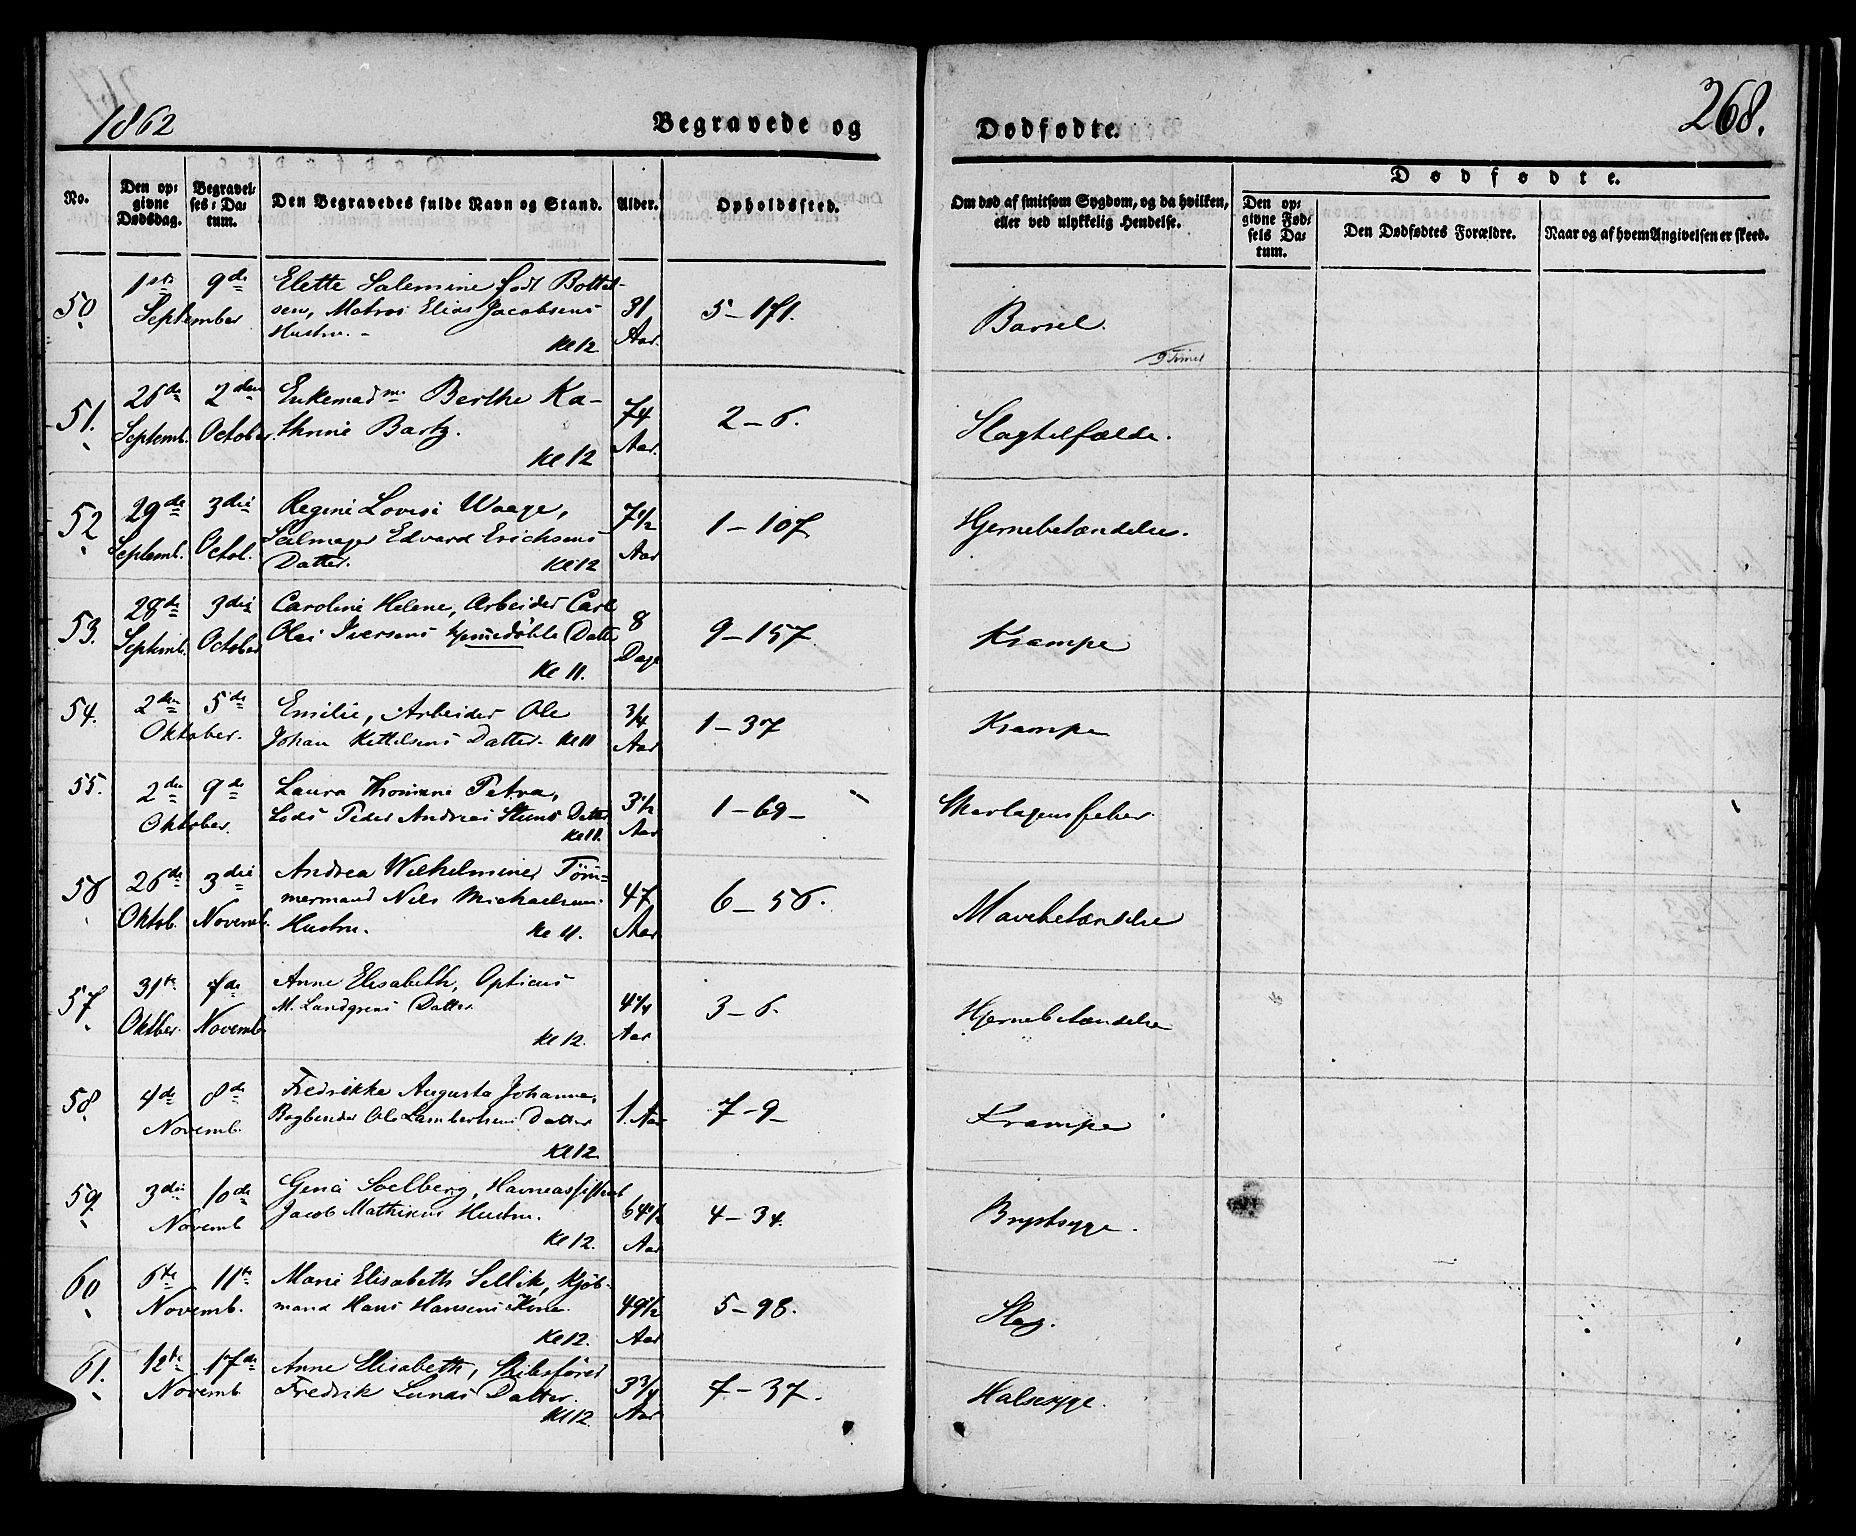 1862
Begravede og
Dødfødte.
268.
No.
Den opgivne Dødsdag.
Begravelses-Datum.
Den Begravedes fulde Navn og Stand.
Alder.
Opholdssted.
Om død af smitsom Sygdom, og da hvilken, eller ved ulykkelig Hendelse.
Dødfødte.
Den opgivne Fødsels Datum.
Den Dødfødtes Forældre.
Naar og af hvem Angivelsen er skeed.
50 1ste 9de September Elette Salemine født Bottel-
sen, Matros Elias Jacobsens
Hustru. - Kl 12 31 Aar. 5-171. Barsel.
9 Timer
51. 26de Septemb. 2den October Enkemadm Berthe Ka-
thrine Bartz. Kl 12 74 Aar. 2-6. Slagtilfælde.
52 29de Septemb. 3die Octob. Regine Lovise Waage,
Seilmager Edvard Erichsens
Datter. Kl 12 7 1/2 Aar 1-107 Hjernebetændelse.
53. 28de Septemb. 3die October Caroline Helene, Arbeider Carl
Olai Iversens hjemmedøbte Datter
Kl 11. 8 Dage 9-157. Krampe
54. 2den 5de Oktober. Emilie, Arbeider Ole
Johan Kettelsens Datter. Kl 11 3/4 Aar 1-37 Krampe
55. 2den 9de Oktober. Laura Thomine Petra,
Lods Peder Andreas Datter
Kl 11. 3 1/2 Aar 1-69- Skarlagensfeber.
56 26de Oktob. 3die Novemb. Andrea Wilhelmine Tøm-
mermand Nils Michaelsens
Hustru. Kl 11. 47 Aar 6-56. Mavebetændelse
57. 31te Oktber. 7de Novemb Anne Elisabeth, Opticus
M. Landgrens Datter.
Kl 12. 4 1/4 Aar 3-6. Hjernebetændelse
58. 4de 8de Novemb. Fredrikke Augusta Johanne,
Bogbinder Ole Lamberthsens Datter
Kl 12. 1. Aar 7-9- Krampe
59. 3die 10de Novemb Gena Soelberg, Havneassistent
Jacob Mathisens Hustru.
Kl 12. 64 1/2 Aar 4-34. Brystsyge.
60 6te 11te Novemb. Marie Elisabeth Sellik, Kjøb-
mand Hans Hansens Kone.
Kl 12. 49 1/2 Aar 5-98. Slag.
61. 12te 17de Novemb Anne Elisabeth, Skibsfører
Fredrik Lunds Datter.
Kl 12. 3 3/4 Aar 7-37. Halssyge.